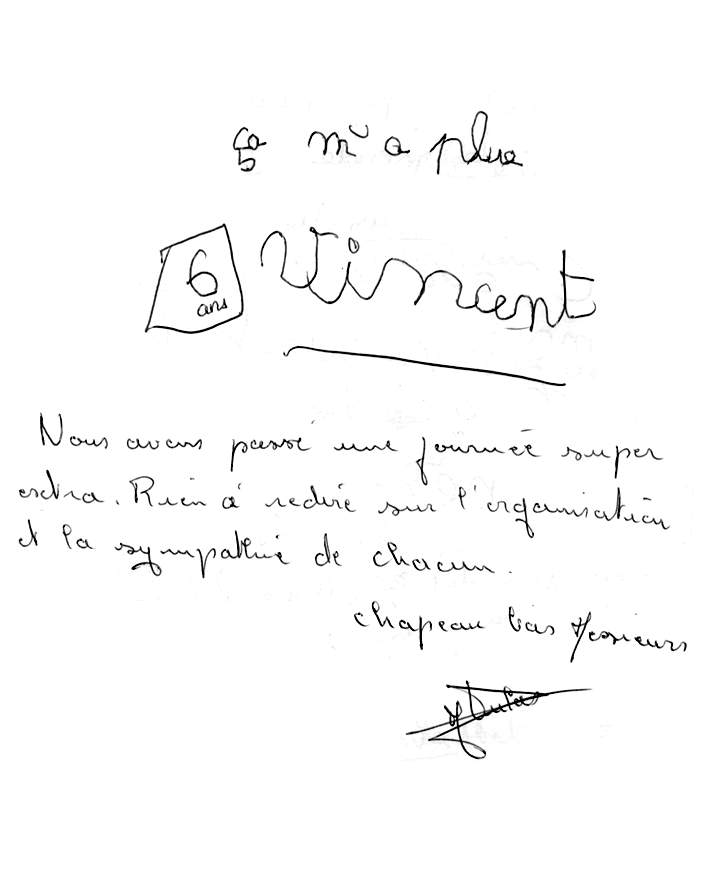 ça m'a plue
6 ans Vincent
Nous avons passé une journée super
extra. Rien à redire sur l'organisation
et la sympathie de chacun.
chapeau bas Messieurs